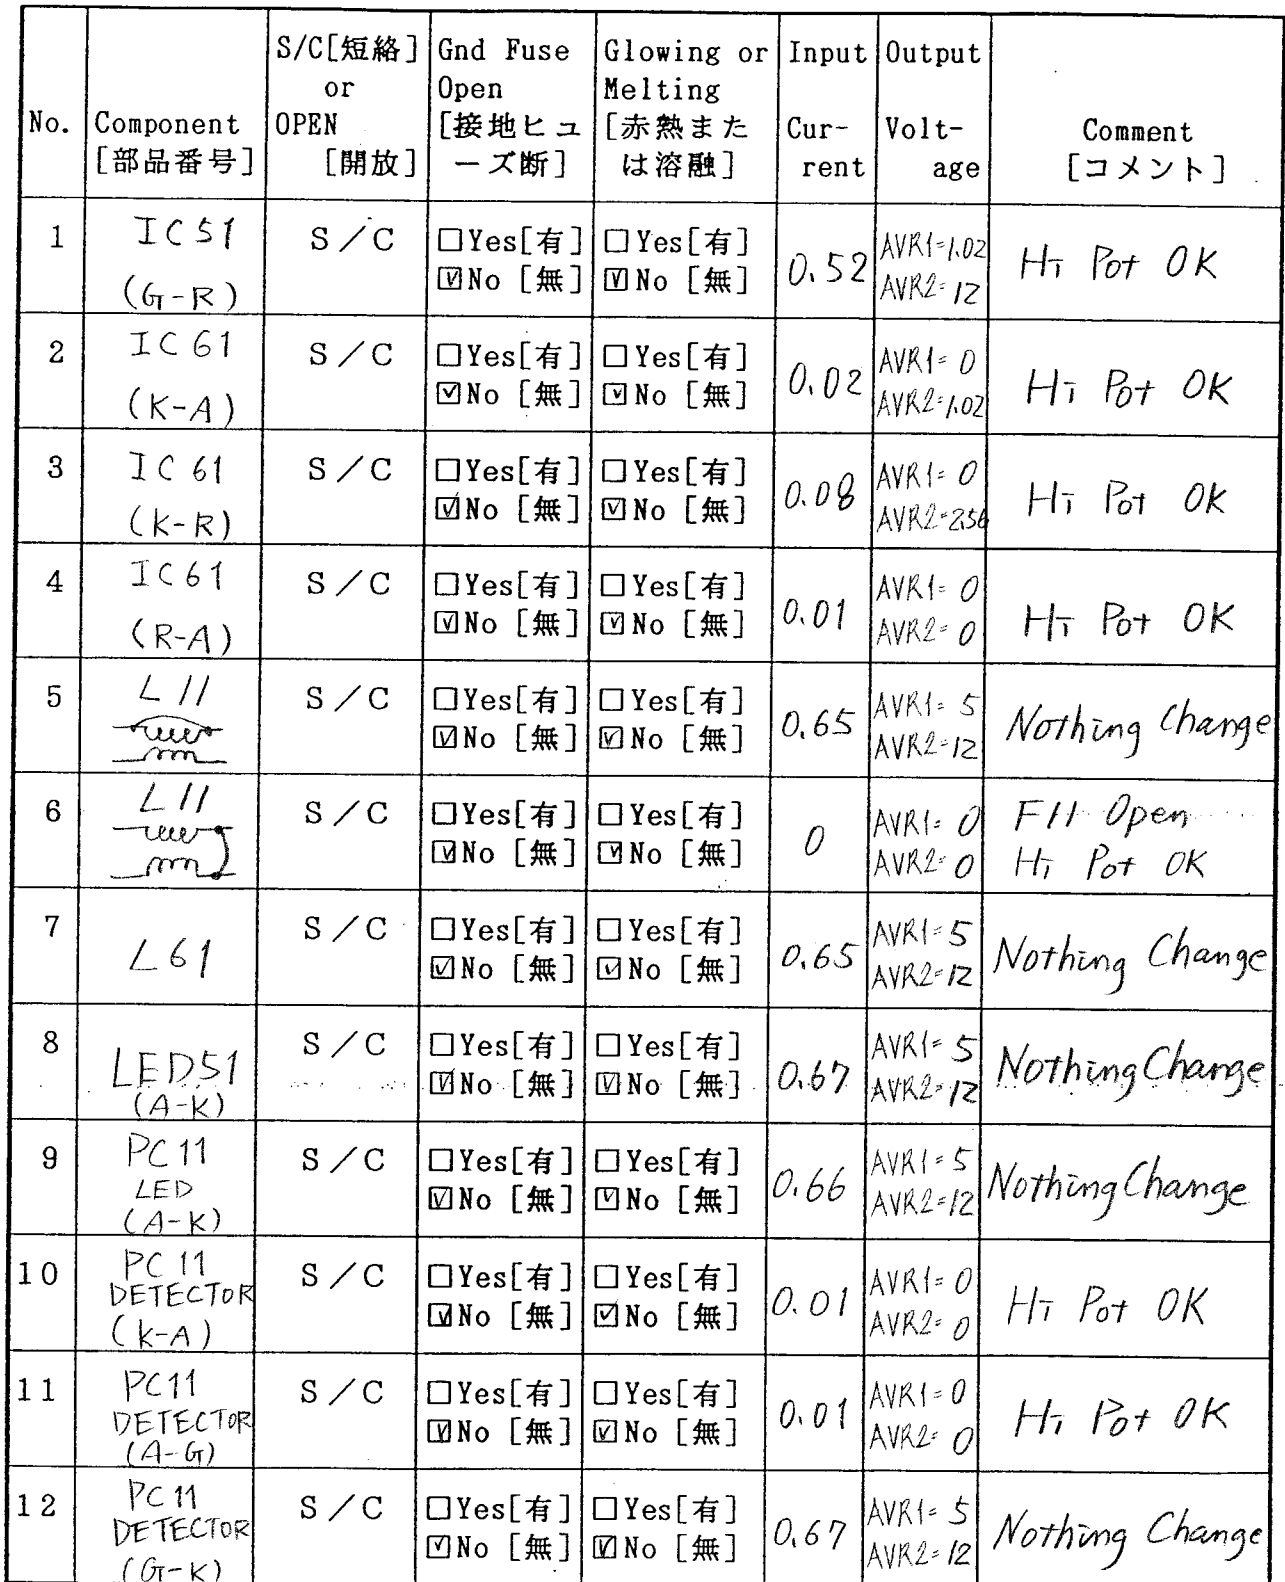 No.
Component
[部品番号]
S/C[短絡]
or
OPEN
[開放]
Gnd Fuse
Open
[接地ヒュ
ーズ断]
Glowing or
Melting
[赤熱また
は溶融]
Input
Cur-
rent
Output
Volt-
age
Comment
[コメント]
1
IC51
(G-R)
S/C
□Yes[有]
☑No [無]
□Yes[有]
☑No [無]
0.52
AVR1=1.02
AVR2=12
Hi Pot OK
2
IC61
(K-A)
S/C
□Yes[有]
☑No [無]
□Yes[有]
☑No [無]
0.02
AVR1=0
AVR2=1.02
Hi Pot OK
3
IC61
(K-R)
S/C
□Yes[有]
☑No [無]
□Yes[有]
☑No [無]
0.08
AVR1=0
AVR2=2.56
Hi Pot OK
4
IC61
(R-A)
S/C
□Yes[有]
☑No [無]
□Yes[有]
☑No [無]
0.01
AVR1=0
AVR2=0
Hi Pot OK
5
L11
S/C
□Yes[有]
☑No [無]
□Yes[有]
☑No [無]
0.65
AVR1=5
AVR2=12
Nothing Change
6
L11
S/C
□Yes[有]
☑No [無]
□Yes[有]
☑No [無]
0
AVR1=0
AVR2=0
F11 Open
Hi Pot OK
7
L61
S/C
□Yes[有]
☑No [無]
□Yes[有]
☑No [無]
0.65
AVR1=5
AVR2=12
Nothing Change
8
LED51
(A-K)
S/C
□Yes[有]
☑No [無]
□Yes[有]
☑No [無]
0.67
AVR1=5
AVR2=12
Nothing Change
9
PC11
LED
(A-K)
S/C
□Yes[有]
☑No [無]
□Yes[有]
☑No [無]
0.66
AVR1=5
AVR2=12
Nothing Change
10
PC11
DETECTOR
(K-A)
S/C
□Yes[有]
☑No [無]
□Yes[有]
☑No [無]
0.01
AVR1=0
AVR2=0
Hi Pot OK
11
PC11
DETECTOR
(A-G)
S/C
□Yes[有]
☑No [無]
□Yes[有]
☑No [無]
0.01
AVR1=0
AVR2=0
Hi Pot OK
12
PC11
DETECTOR
(G-K)
S/C
□Yes[有]
☑No [無]
□Yes[有]
☑No [無]
0.67
AVR1=5
AVR2=12
Nothing Change